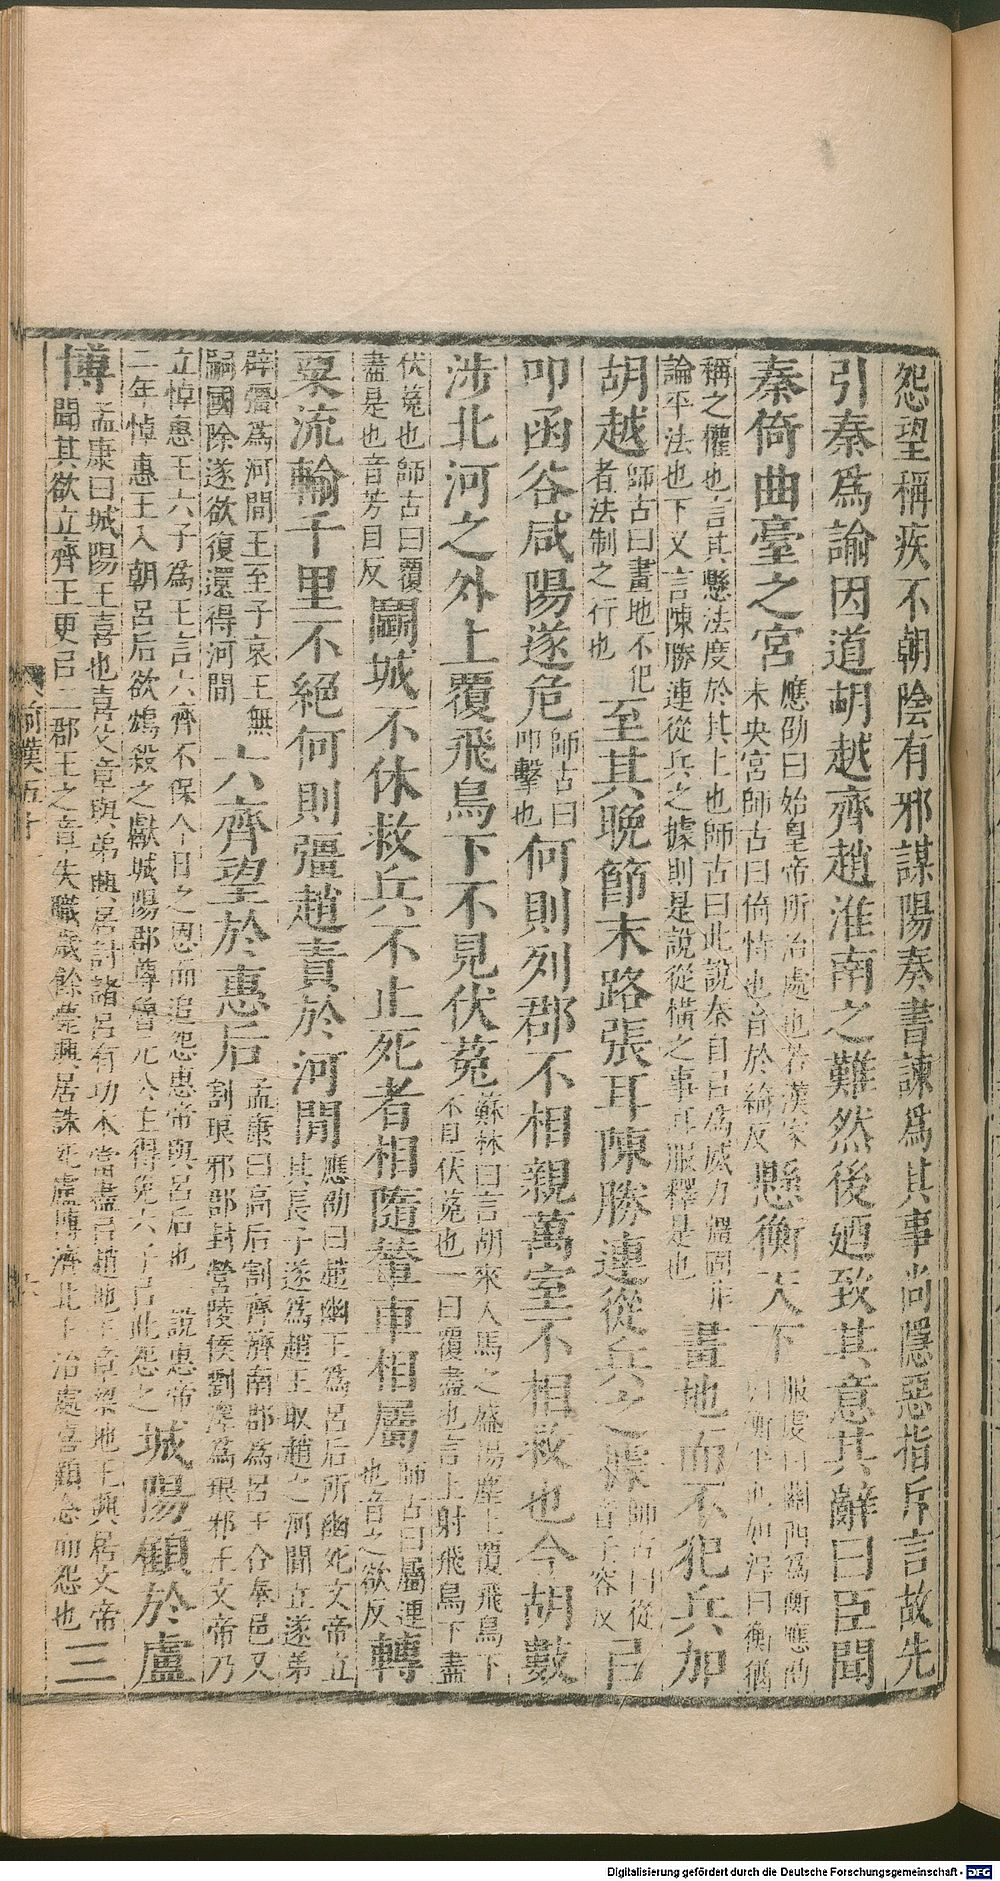 怨望稱疾不朝陰有邪謀陽奏書諫爲其事尚隱惡指斥言故先
引秦爲諭因道胡越齊趙淮南之難然後廼致其意其辭曰臣聞
秦倚曲臺之宮
應劭曰始皇帝所治處也若漢家
未央宮師古曰倚恃也音於綺反
懸衡天下
服虔曰關西爲衡應劭
曰衡平也如淳曰衡猶
稱之權也言其懸法度於其上也師古曰此說秦自以爲威力彊固非
論平法也下又言陳勝連從兵之據則是說從橫之事耳服釋是也
畫地而不犯兵加
胡越
師古曰畫地不犯
者法制之行也
至其晚節末路張耳陳勝連從兵之據
師古曰從
音子容反
㠯
叩函谷咸陽遂危
師古曰
叩擊也
何則列郡不相親萬室不相救也今胡數
涉北河之外上覆飛鳥下不見伏菟
蘇林曰言胡來人馬之盛揚塵上覆飛鳥下
不見伏菟也一曰覆盡也言上射飛鳥下盡
伏菟也師古曰覆
盡是也音芳目反
鬬城不休救兵不止死者相隨輦車相屬
師古曰屬連
也音之欲反
轉
粟流輸千里不絕何則彊趙責於河間
應劭曰趙幽王爲呂后所幽死文帝立
其長子遂爲趙王取趙之河間立遂弟
辟彊爲河間王至子哀王無
嗣國除遂欲復還得河間
六齊望於惠后
孟康曰高后割齊濟南郡爲呂王台奉邑又
割琅邪郡封營陵侯劉澤爲琅邪王文帝乃
立悼惠王六子爲王言六齊不保今日之恩而追怨惠帝與呂后也 說惠帝
二年悼惠王入朝呂后欲鴆殺之獻城陽郡尊魯元公主得免六子以此怨之
城陽顧於盧
博
孟康曰城陽王喜也喜父章與弟興居討諸呂有功本當盡以趙地王章梁地王興居文帝
聞其欲立齊王更以二郡王之章失職歲餘薨興居誅死盧博濟北王治處喜顧念而怨也
三
前漢五十一
Digitalisierung gefördert durch die Deutsche Forschungsgemeinschaft - DFG